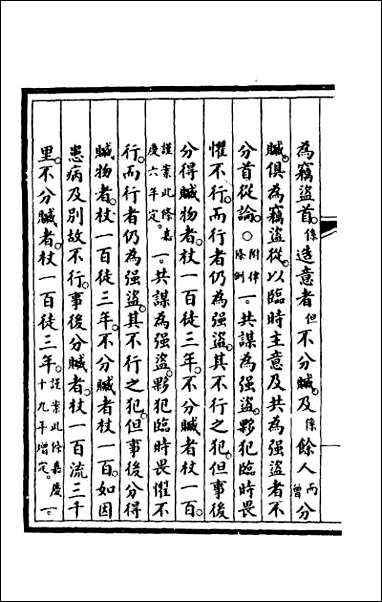 為竊盜首。係造意者但不分贓。及係餘人而曾分
贓。俱為竊盜從。以臨時主意及共為強盜者不
分首從論。○附律條例一。共謀為強盜。夥犯臨時畏
懼不行。而行者仍為強盜。其不行之犯。但事後
分得贓物者。杖一百徒三年。不分贓者。杖一百。
謹案此條嘉慶六年定。一。共謀為強盜。夥犯臨時畏懼不
行。而行者仍為強盜。其不行之犯。但事後分得
贓物者。杖一百徒三年。不分贓者。杖一百。如因
患病及別故不行。事後分贓者。杖一百流三千
里。不分贓者。杖一百徒三年。謹案此條嘉慶十九年增定。一。